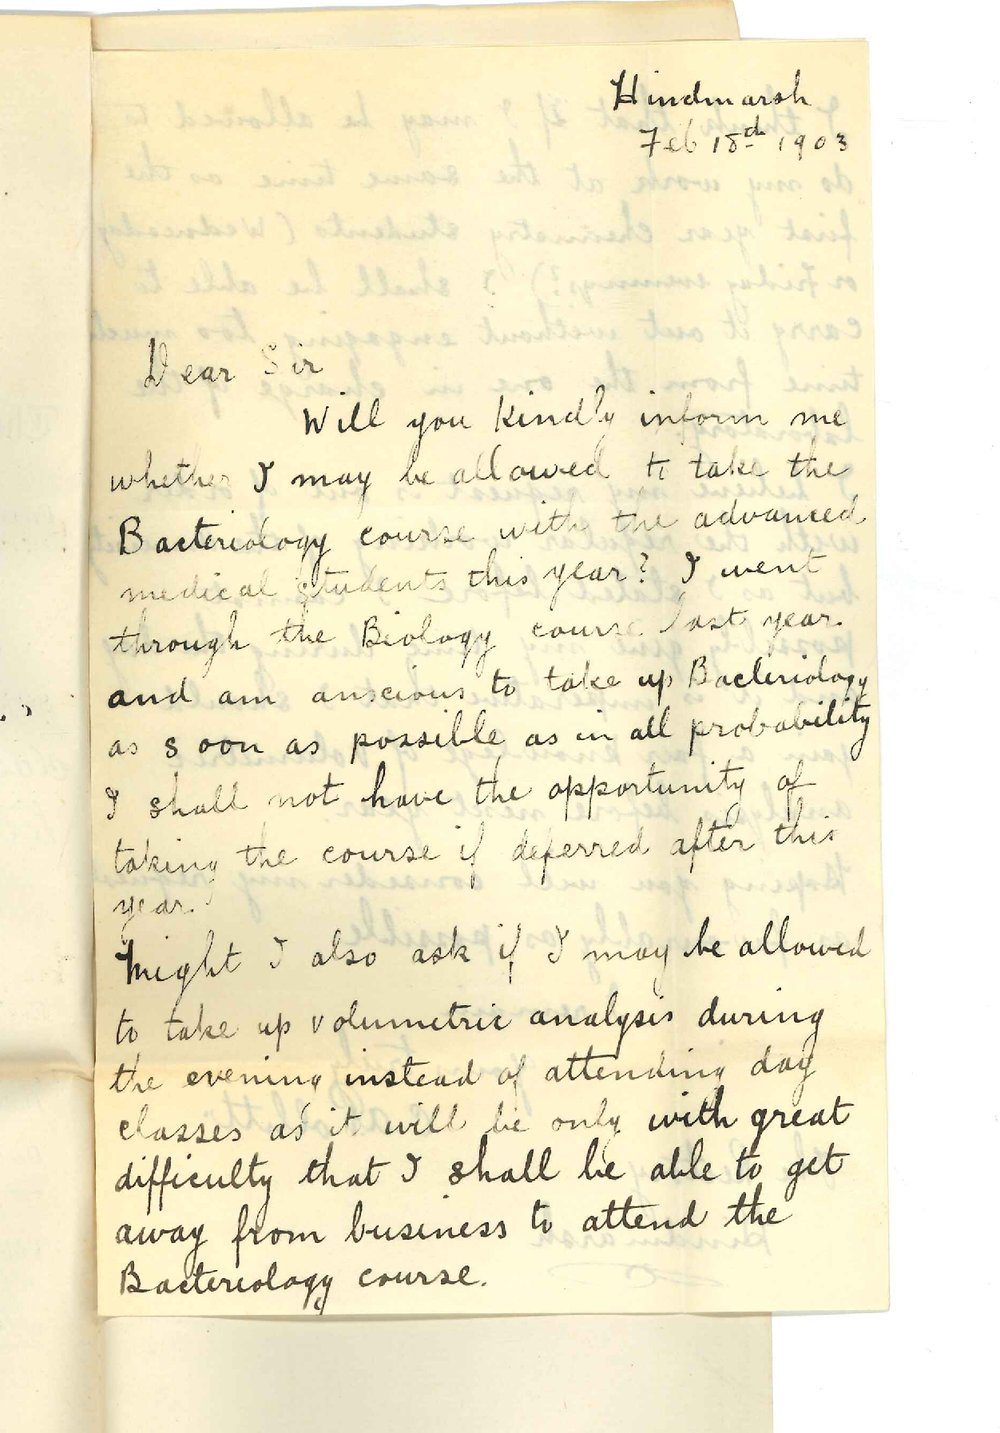 Hindmarsh
Feb 18th 1903
Dear Sir
Will you kindly inform me
whether I may be allowed to take the
Bacteriology course with the advanced
medical students this year? I went
through the Biology course last year
and am anscious to take up Bacteriology
as soon as possible as in all probability
I shall not have the opportunity of
taking the course if deferred after this
year.
Might I also ask if I may be allowed
to take up volumetric analysis during
the evening instead of attending day
classes as it will be only with great
difficulty that I shall be able to get
away from business to attend the
Bacteriology course.